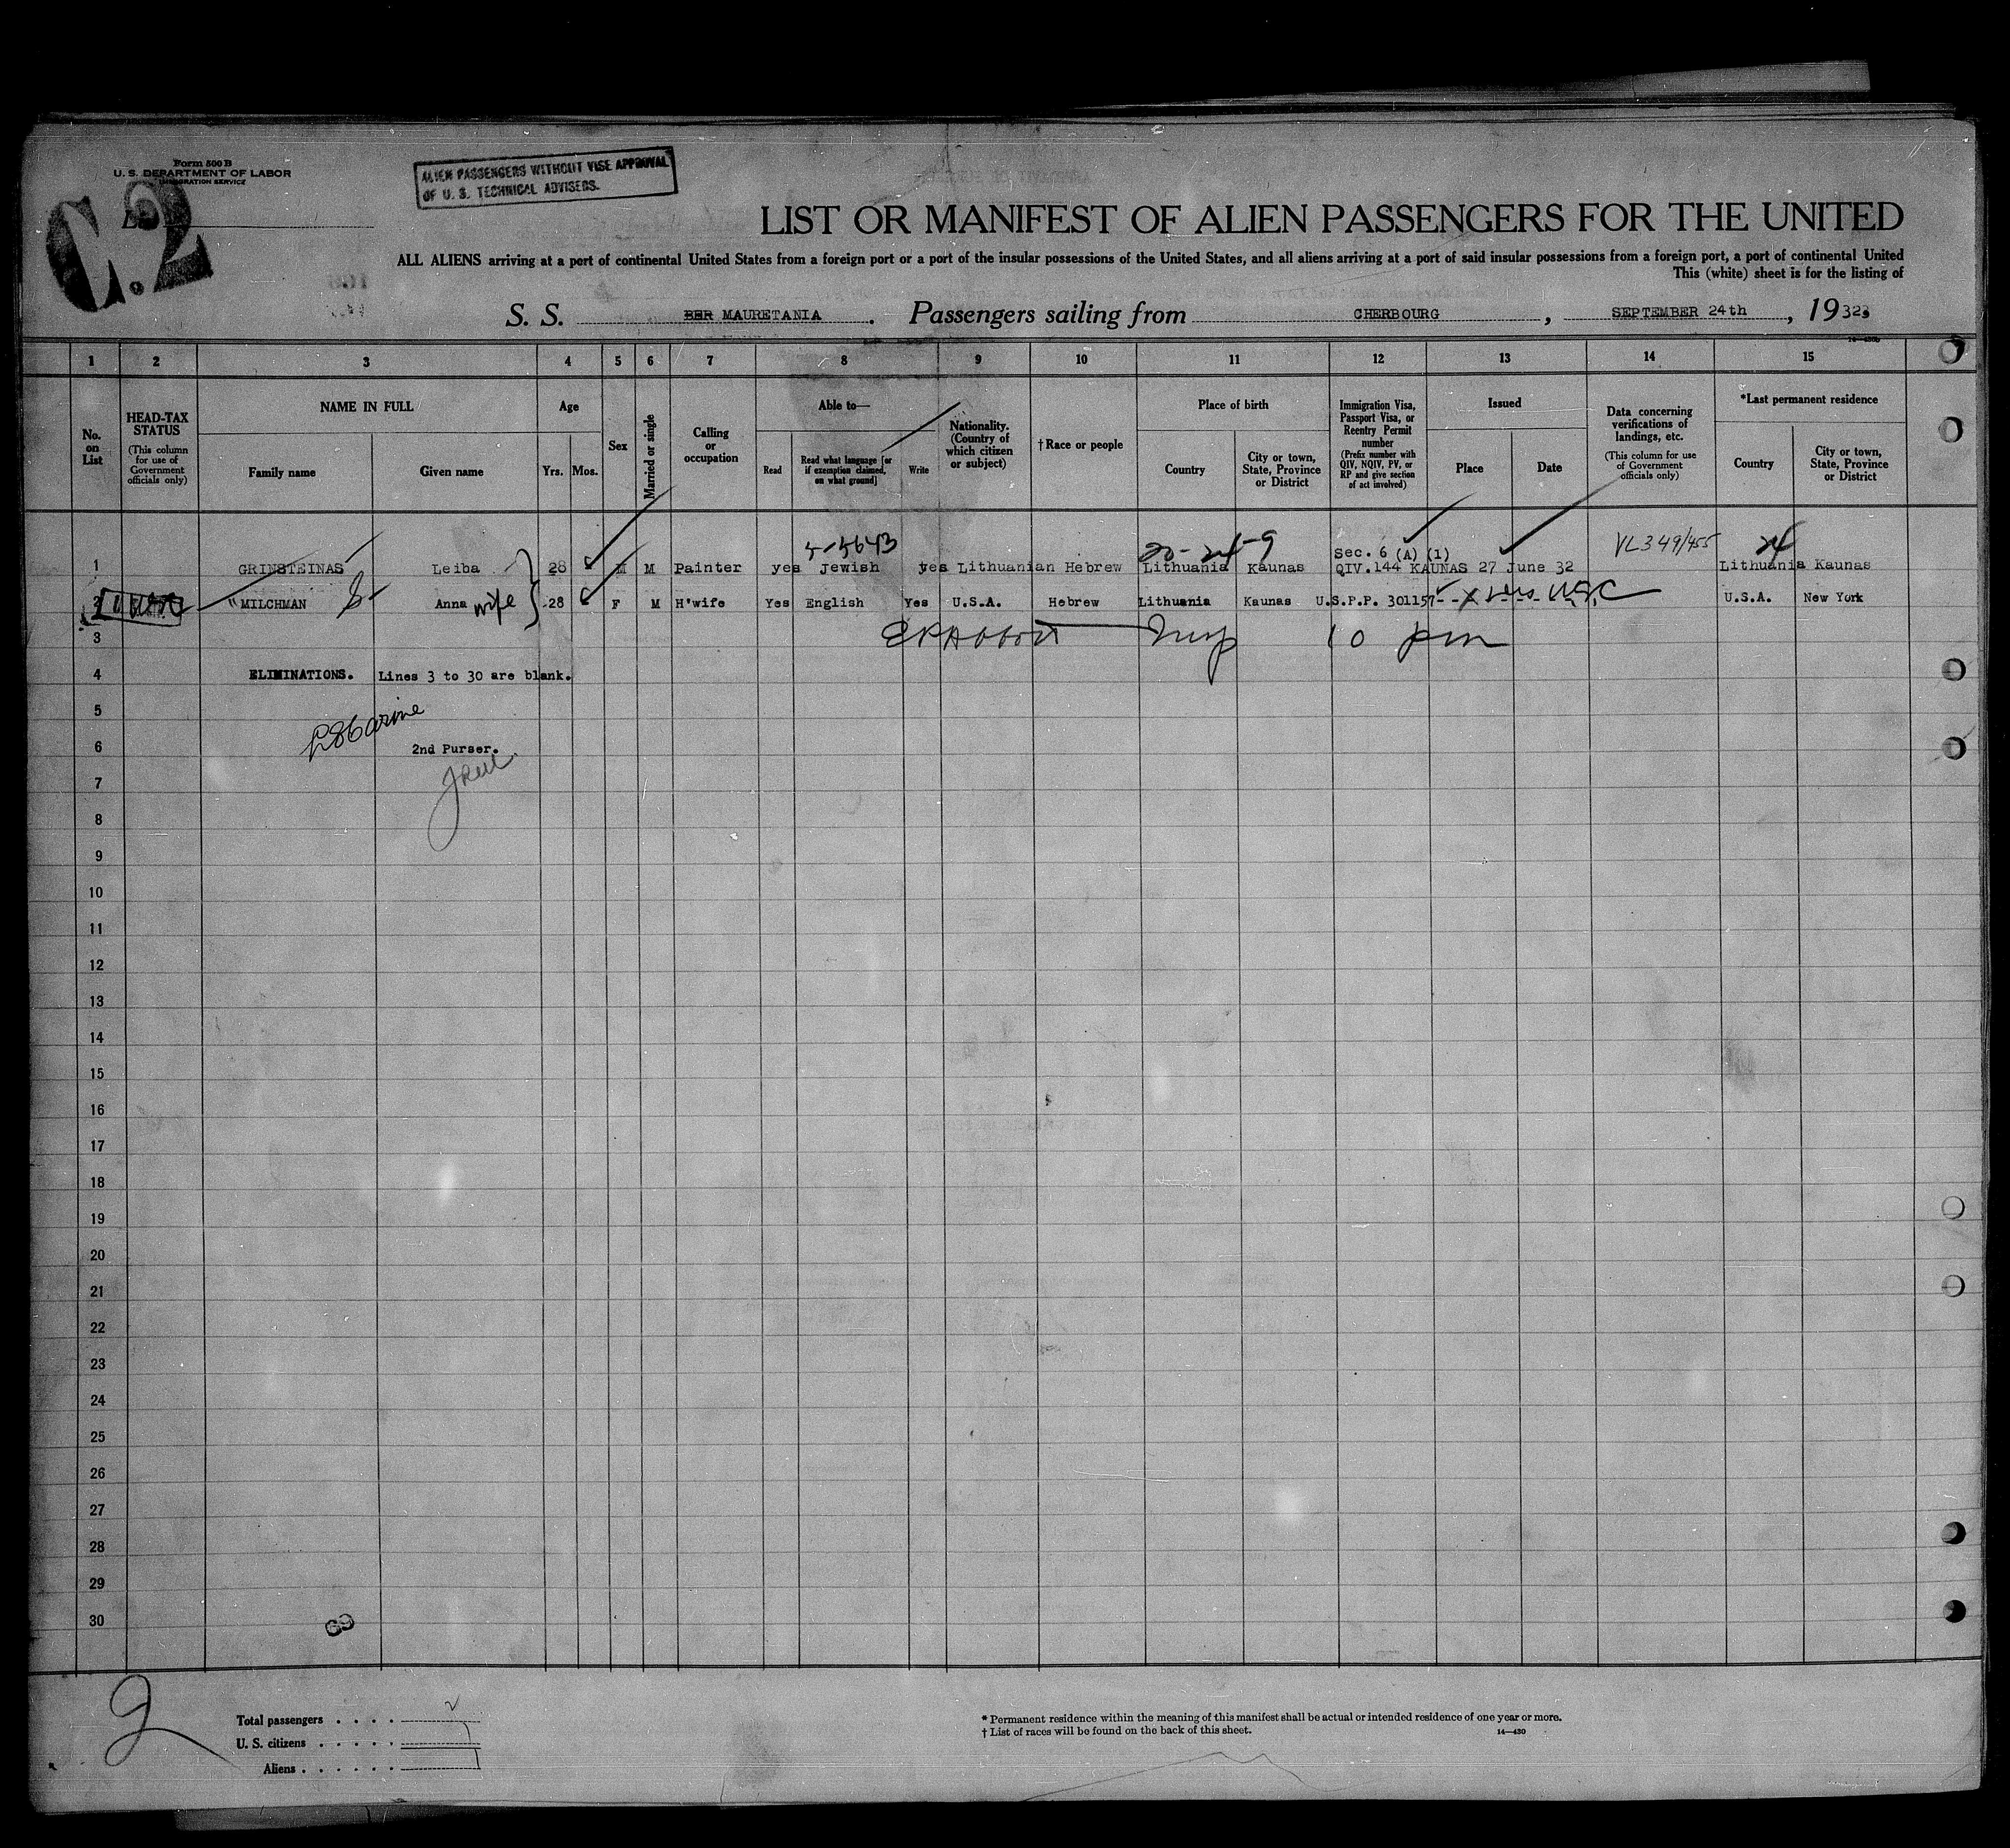 Form 500 B
U. S. DEPARTMENT OF LABOR
IMMIGRATION SERVICE
C.2
ALIEN PASSENGERS WITHOUT VISE APPROVAL
OF U. S. TECHNICAL ADVISERS.
LIST OR MANIFEST OF ALIEN PASSENGERS FOR THE UNITED
ALL ALIENS arriving at a port of continental United States from a foreign port or a port of the insular possessions of the United States, and all aliens arriving at a port of said insular possessions from a foreign port, a port of continental United
This (white) sheet is for the listing of
S. S. BER MAURETANIA. Passengers sailing from CHERBOURG, SEPTEMBER 24th, 1932
1 2 3 4 5 6 7 8 9 10 11 12 13 14 15
No. on List
HEAD-TAX STATUS (This column for use of Government officials only)
NAME IN FULL
Family name
Given name
Age
Yrs. Mos.
Sex
Married or single
Calling or occupation
Able to—
Read
Read what language [or if exemption claimed, on what ground]
Write
Nationality. (Country of which citizen or subject)
†Race or people
Place of birth
Country
City or town, State, Province or District
Immigration Visa, Passport Visa, or Reentry Permit number (Prefix number with QIV, NQIV, PV, or RP and give section of act involved)
Issued
Place
Date
Data concerning verifications of landings, etc. (This column for use of Government officials only)
*Last permanent residence
Country
City or town, State, Province or District
5-5643 20-24-9 Sec. 6 (A) (1) VL349/455 24
1 GRINSTEINAS Leiba 28 M M Painter yes Jewish yes Lithuanian Hebrew Lithuania Kaunas QIV.144 KAUNAS 27 June 32 Lithuania Kaunas
2 "MILCHMAN Anna wife 28 F M H'wife Yes English Yes U.S.A. Hebrew Lithuania Kaunas U.S.P.P. 301157 USC U.S.A. New York
3 Insp 10 pm
4 ELIMINATIONS. Lines 3 to 30 are blank.
5
6 2nd Purser.
7
8
9
10
11
12
13
14
15
16
17
18
19
20
21
22
23
24
25
26
27
28
29
30
69
2
Total passengers . . . . 2
U. S. citizens . . . . . 1
Aliens . . . . . . 1
* Permanent residence within the meaning of this manifest shall be actual or intended residence of one year or more.
† List of races will be found on the back of this sheet.
14—430